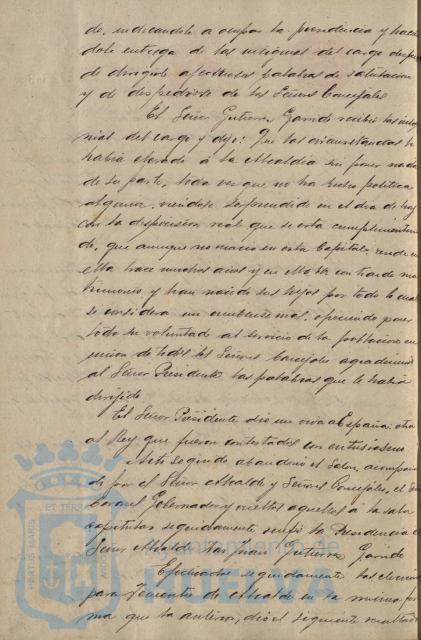 de, indicandole a ocupar la presidencia y hacien
dole entrega de las insignias del cargo despues
de dirigirle afectuosas palabras de salutacion
y de despedirse de los Señores Concejales
El Señor Gutierrez Garrido recibio las insig
nias del cargo y dijo: Que las circunstancias le
habia elevado á la Alcaldia sin poner nada
de su parte, toda vez que no ha hecho politica
alguna, viendose sorprendido en el dia de hoy
con la disposicion real que se esta cumplimentan
do, que aunque no nacio en esta Capital, reside en
ella hace muchos años y en ella ha contraido ma
trimonio y han nacido sus hijos por todo lo cual
se considera un onubense mas, ofreciendo poner
toda su voluntad al servicio de la poblacion en
union de todos los Señores Concejales agradeciendo
al Señor Presidente las palabras que le habia
dirigido
El Señor Presidente dio un viva a España otro
al Rey que fueron contestados con entusiasmo
Acto seguido abandonó el Salon, acompaña
do por el Señor Alcalde y Señores Concejales, el Señor
Coronel Gobernador y vueltos aquellos a la sala
capitular seguidamente ocupó la Presidencia el
Señor Alcalde Don Juan Gutierrez Garrido
Efectuadas seguidamente las eleccion
para Tenientes de Alcalde en la misma for
ma que la anterior, dió el siguiente resultado
Ayuntamiento de
HUELVA
PORTUS MARIS
ET TERRAE